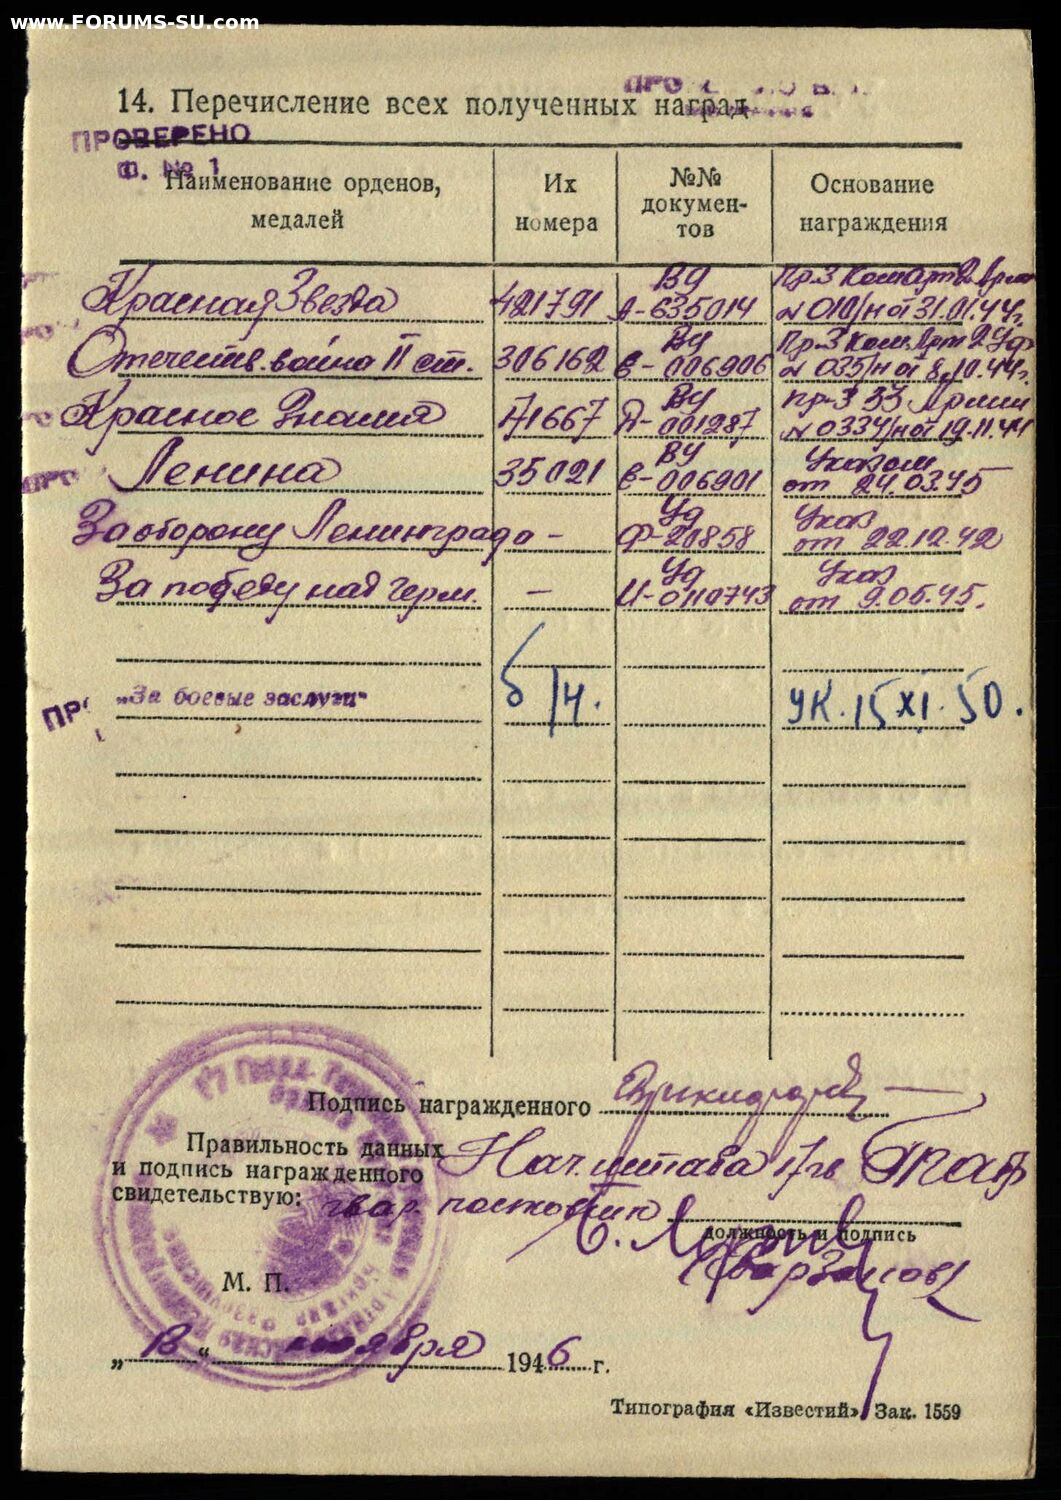 www.FORUMS-SU.com
14. Перечисление всех полученных наград
ПРОВЕРЕНО
Ф. № 1
Наименование орденов, медалей
Их номера
№№ документов
Основание награждения
Красная Звезда 421791 А-635014 Пр. № 010/н от 31.01.44г.
Отечеств. война II ст. 306162 В-006906 № 035/н от 8.10.44г.
Красное Знамя 71667 А-001287 Пр-з 33 Армии № 0334/н от 19.11.44
Ленина 35021 В-006901 Указом от 24.03.45
За оборону Ленинграда - Уд Ф-20858 Указ от 22.12.42
За победу над герм. — Уд И-0110743 Указ от 9.05.45.
„За боевые заслуги“ б/н. УК. 15 XI. 50.
Подпись награжденного
Правильность данных
и подпись награжденного
свидетельствую:
Нач. штаба 17 гв
гвар.
должность и подпись
М. П.
ноября 1946 г.
Типография «Известий» Зак. 1559